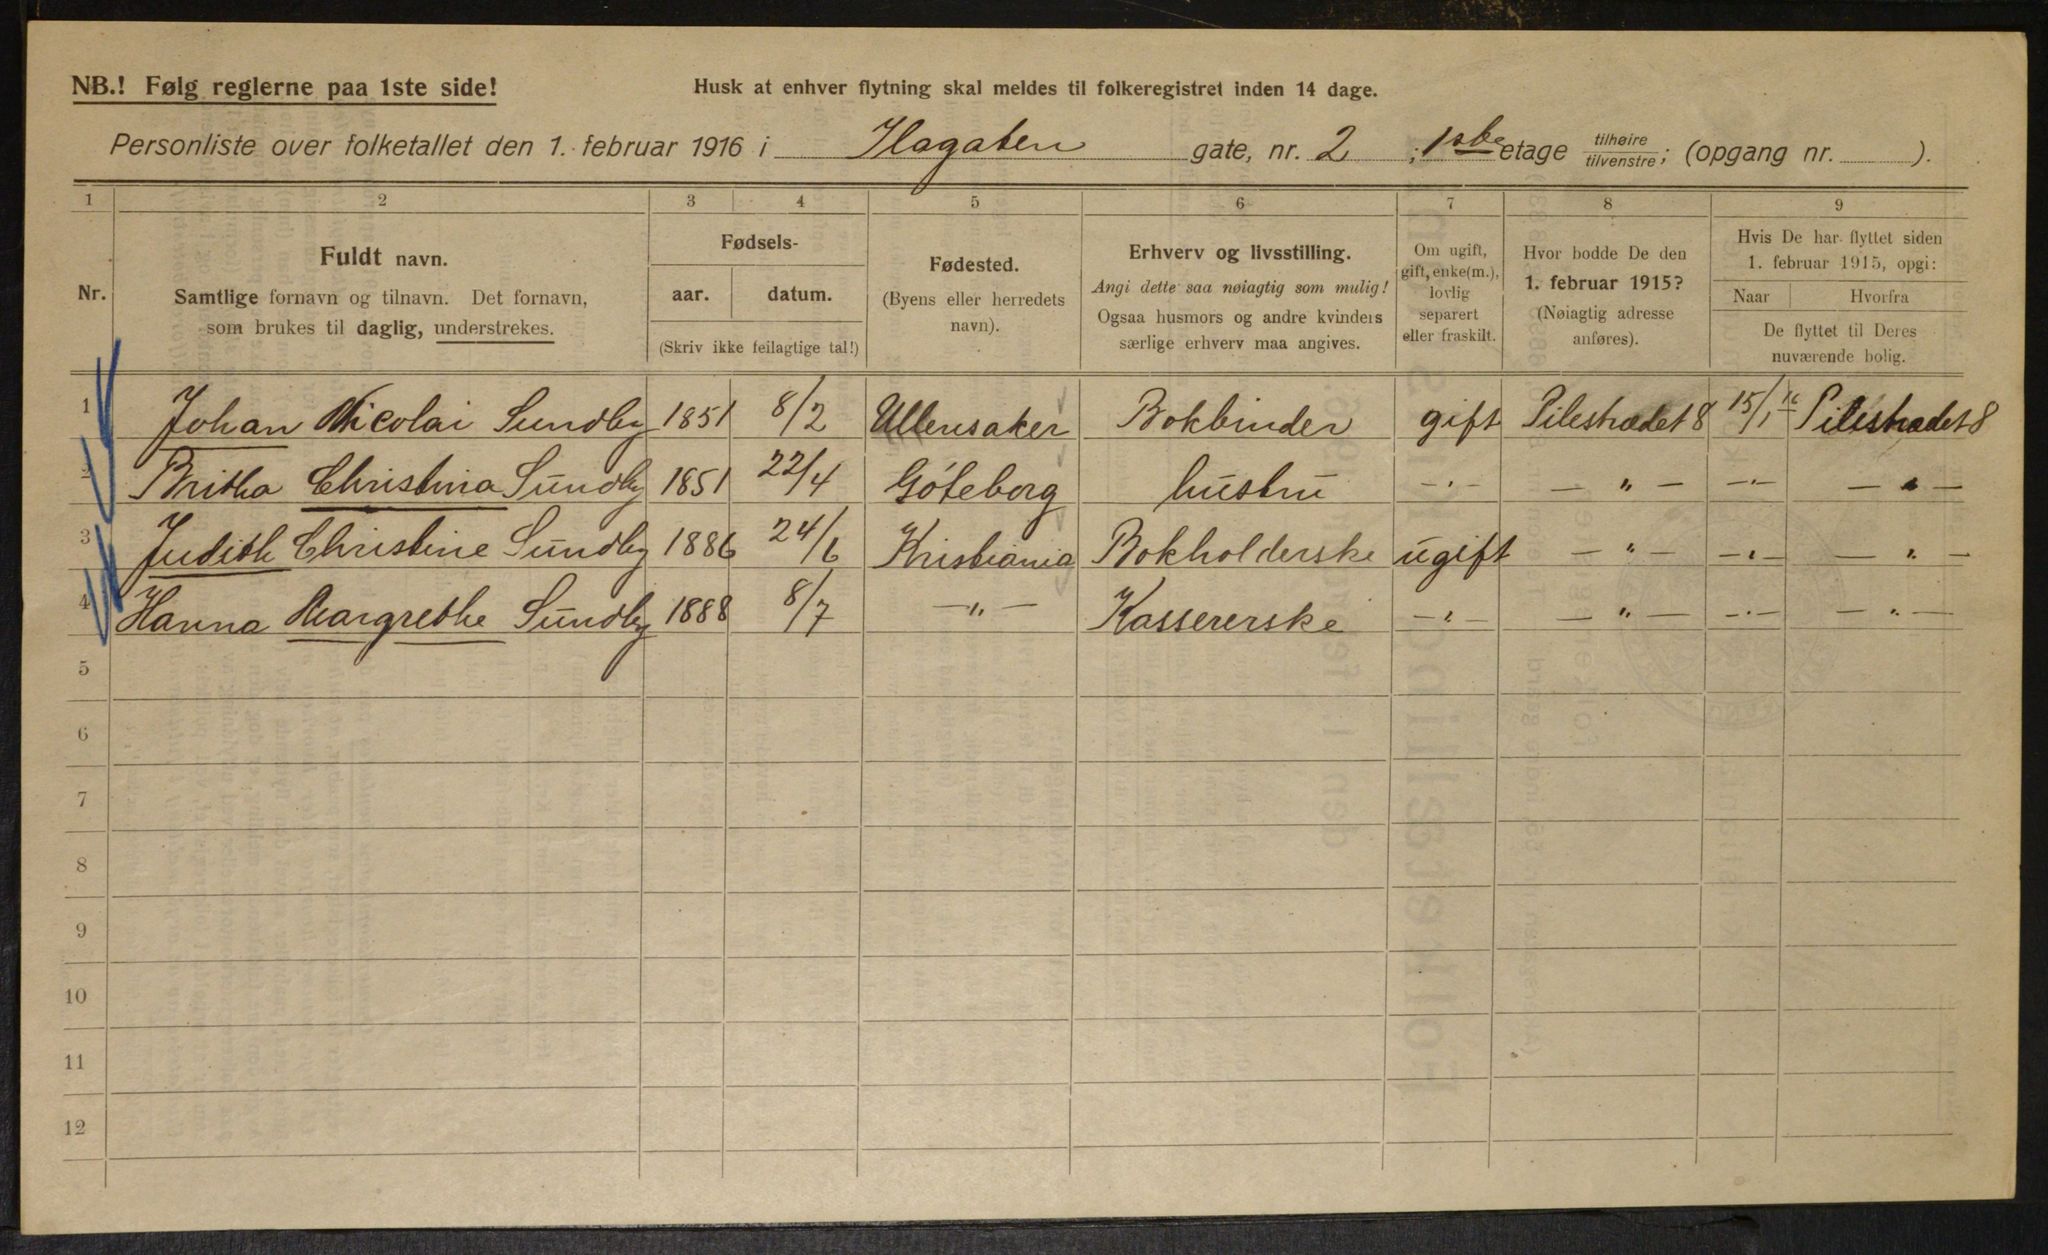 NB.! Følg reglerne paa 1ste side!
Husk at enhver flytning skal meldes til folkeregistret inden 14 dage.
Personliste over folketallet den 1. februar 1916 i Ilagaten gate, nr. 2 ; 1ste etage tilhøire / tilvenstre; (opgang nr. ).
1 2 3 4 5 6 7 8 9
Nr.
Fuldt navn.
Samtlige fornavn og tilnavn. Det fornavn,
som brukes til daglig, understrekes.
Fødsels-
aar. datum.
(Skriv ikke feilagtige tal!)
Fødested.
(Byens eller herredets
navn).
Erhverv og livsstilling.
Angi dette saa nøiagtig som mulig!
Ogsaa husmors og andre kvinders
særlige erhverv maa angives.
Om ugift,
gift, enke(m.),
lovlig
separert
eller fraskilt.
Hvor bodde De den
1. februar 1915?
(Nøiagtig adresse
anføres).
Hvis De har flyttet siden
1. februar 1915, opgi:
Naar Hvorfra
De flyttet til Deres
nuværende bolig.
1 Johan Nicolai Sundby 1851 8/2 Ullensaker Bokbinder gift Pilestrædet 8 15/1 16 Pilestrædet 8
2 Britha Christina Sundby 1851 22/4 Göteborg hustru —"— —"— —"— —"—
3 Judith Christine Sundby 1886 24/6 Kristiania Bokholderske ugift —"— —"— —"—
4 Hanna Margrethe Sundby 1888 8/7 —"— Kassererske —"— —"— —"— —"—
5
6
7
8
9
10
11
12